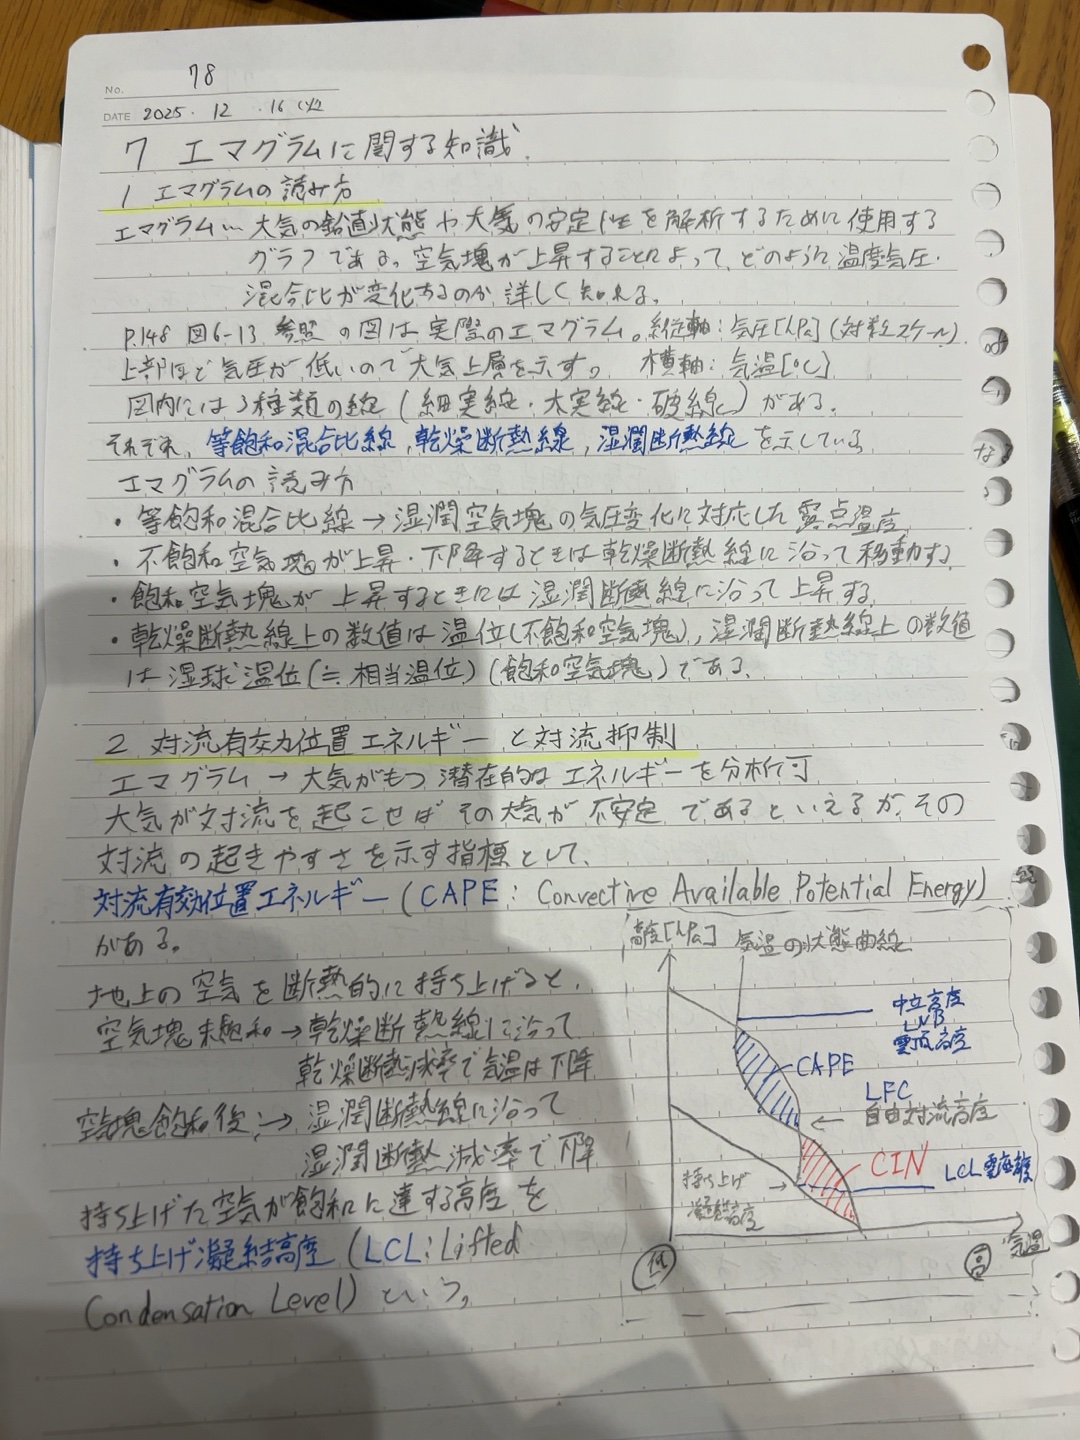 No. 78
DATE 2025. 12 .16 (火)
7 エマグラムに関する知識
1 エマグラムの読み方
エマグラム… 大気の鉛直状態や大気の安定性を解析するために使用する
グラフである。空気塊が上昇することによって、どのように温度気圧・
混合比が変化するのか詳しく知れる。
P.148 図6-13 参照 の図は実際のエマグラム。縦軸:気圧[hPa](対数スケール)
上部ほど気圧が低いので大気上層を示す。 横軸:気温[℃]
図内には3種類の線(細実線・太実線・破線)がある。
それぞれ、等飽和混合比線,乾燥断熱線,湿潤断熱線を示している
エマグラムの読み方
・等飽和混合比線→湿潤空気塊の気圧変化に対応した露点温度
・不飽和空気塊が上昇・下降するときは乾燥断熱線に沿って移動する
・飽和空気塊が上昇するときには湿潤断熱線に沿って上昇する
・乾燥断熱線上の数値は温位(不飽和空気塊),湿潤断熱線上の数値
は湿球温位(≒相当温位)(飽和空気塊)である。
2 対流有効力位置エネルギーと対流抑制
エマグラム→大気がもつ潜在的なエネルギーを分析可
大気が対流を起こせばその大気が不安定であるといえるが、その
対流の起きやすさを示す指標として、
対流有効位置エネルギー(CAPE:Convective Available Potential Energy)
がある。
地上の空気を断熱的に持ち上げると、
空気塊未飽和→乾燥断熱線に沿って
乾燥断熱減率で気温は下降
空気塊飽和後→湿潤断熱線に沿って
湿潤断熱減率で下降
持ち上げた空気が飽和に達する高度を
持ち上げ凝結高度(LCL:Lifted
Condensation Level)という。
高度[hPa]
気温の状態曲線
中立高度
LNB
雲頂高度
CAPE
LFC
←自由対流高度
CIN
LCL 雲底高度
持ち上げ→
凝結高度
低
高
気温